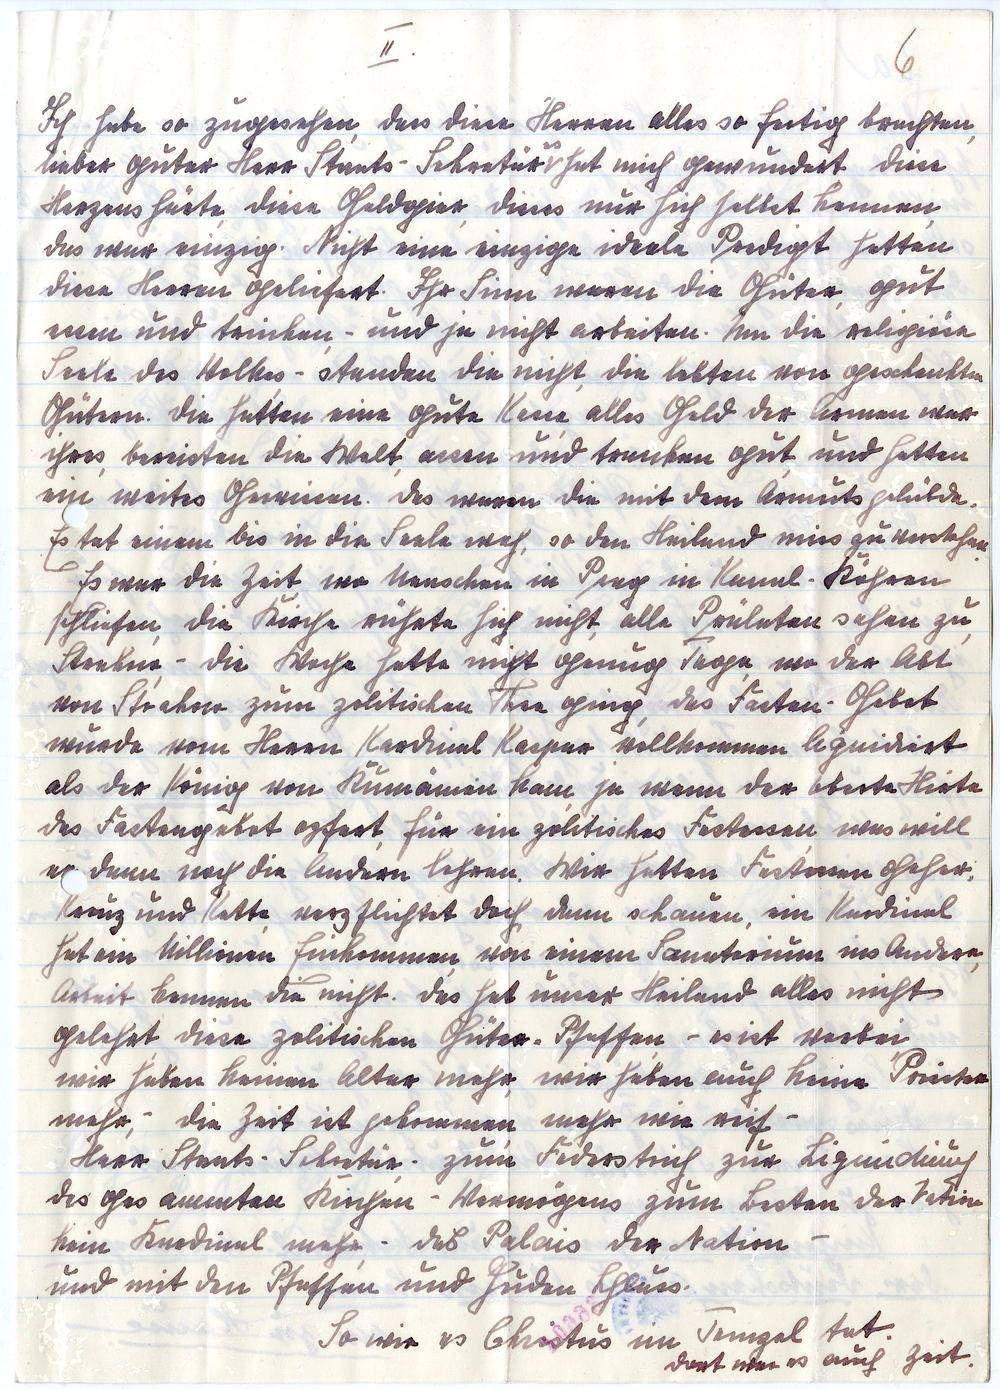 II.
6
Ich habe so zugesehen, dass diese Herren alles so fertig brachten,
lieber guter Herr Staats-Sekretär es hat mich gewundert diese
Herzenshärte, diese Geldgier, dieses nur sich selbst kennen,
das war einzig. Nicht eine einzige ideale Predigt hatten
diese Herren geliefert. Ihr Sinn waren die Güter, gut
essen und trinken, - und ja nicht arbeiten. Um die religiöse
Seele des Volkes - standen die nicht, die lebten von geschenkten
Gütern. Die hatten eine gute Kasse, alles Geld der Armen war
ihres, bereisten die Welt, assen und tranken gut, und hatten
ein weites Gewissen. Das waren die mit dem Armutsgelübde.
Es tat einem bis in die Seele weh, so den Heiland miss zu verstehen.
Es war die Zeit wo Menschen in Prag in Kanal-Röhren
schliefen, die Kirche rührte sich nicht, alle Prälaten sahen zu,
Strahov - die Woche hatte nicht genug Tage, wo der Abt
von Strahov zum politischen Thee ging, das Fasten-Gebot
wurde vom Herrn Kardinal Kaspar vollkommen liquidiert
als der König von Rumänien kam, ja wenn der oberste Hirte
das Fastengebot opfert, für ein politisches Festessen, was will
er dann noch die Andern lehren. Wir hatten Festessen
Kreuz und Kette, verpflichtet doch, dann schauen, ein Kardinal
hat ein Millionen Einkommen, von einem Sanatorium ins Andere,
Arbeit kennen die nicht. Das hat unser Heiland alles nicht
gelehrt, diese politischen Güter-Pfaffen, - es ist vorbei
wir haben keinen Alter mehr, wir haben auch keine Priester
mehr, - die Zeit ist gekommen, mehr wie reif -
Herr Staats-Sekretär. zum Federstrich zur
des gesammten Kirchen-Vermögens zum Besten der Nation
kein Kardinal mehr, - das Palais der Nation -
und mit den Pfaffen und Juden Schluss.
So wie es Christus im Tempel tat.
dort war es auch Zeit.